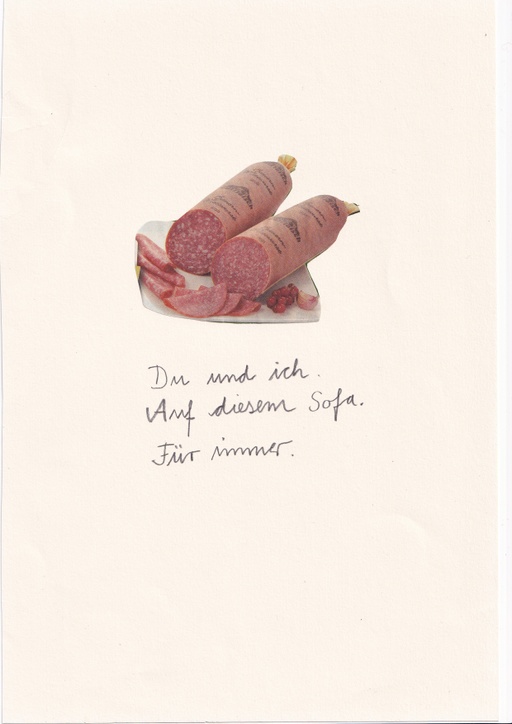 Du und ich.
Auf diesem Sofa.
Für immer.